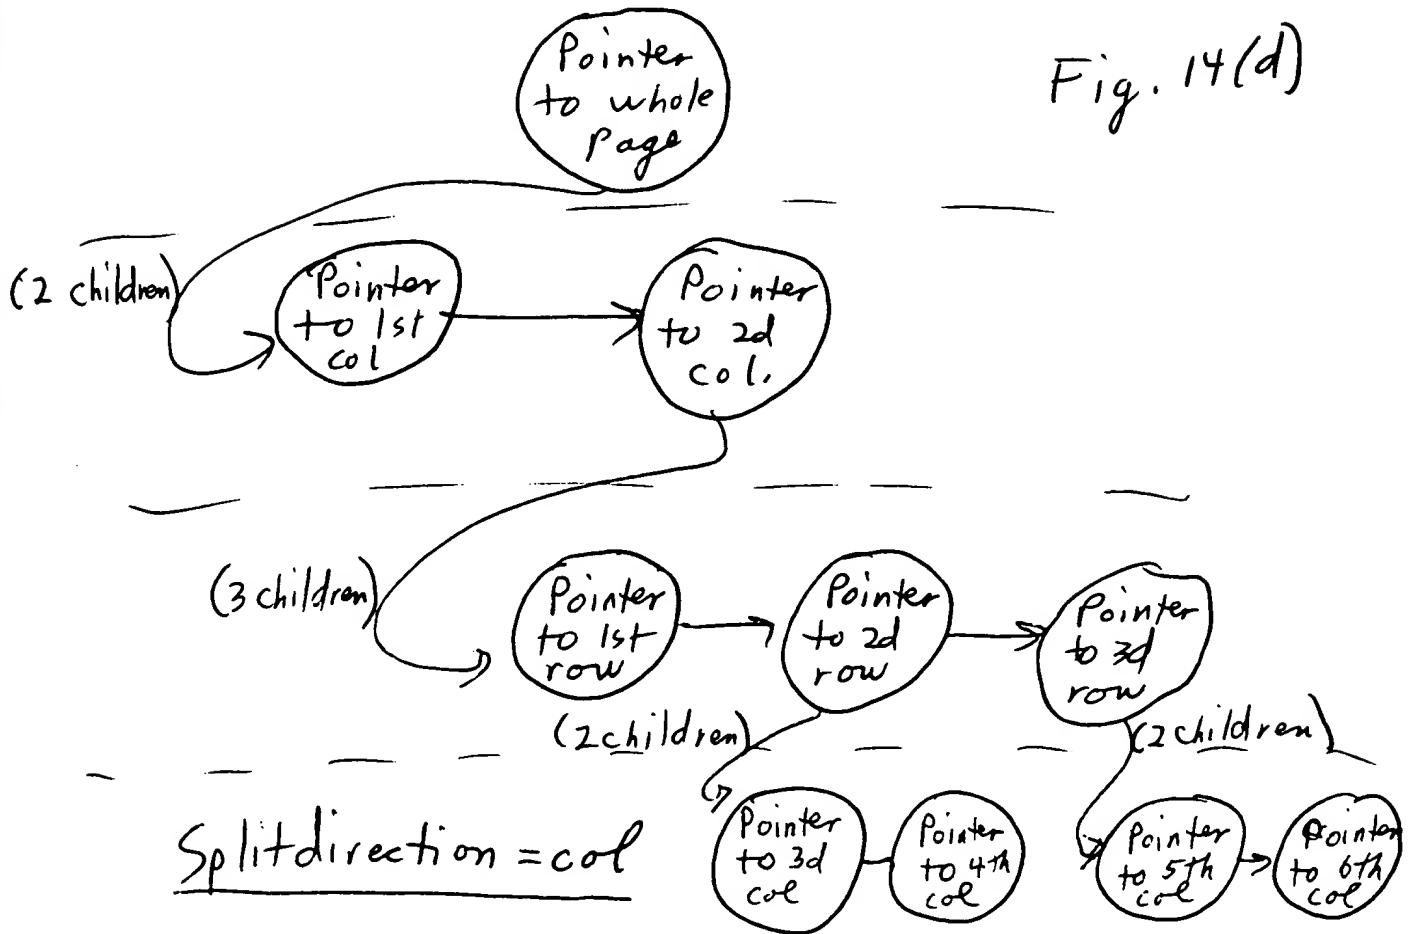 Pointer
to whole
Page
Fig. 14(d)
(2 children)
Pointer
to 1st
col
Pointer
to 2d
col.
(3 children)
Pointer
to 1st
row
Pointer
to 2d
row
Pointer
to 3d
row
(2 children)
(2 children)
Splitdirection = col
Pointer
to 3d
col
Pointer
to 4th
col
Pointer
to 5th
col
Pointer
to 6th
col